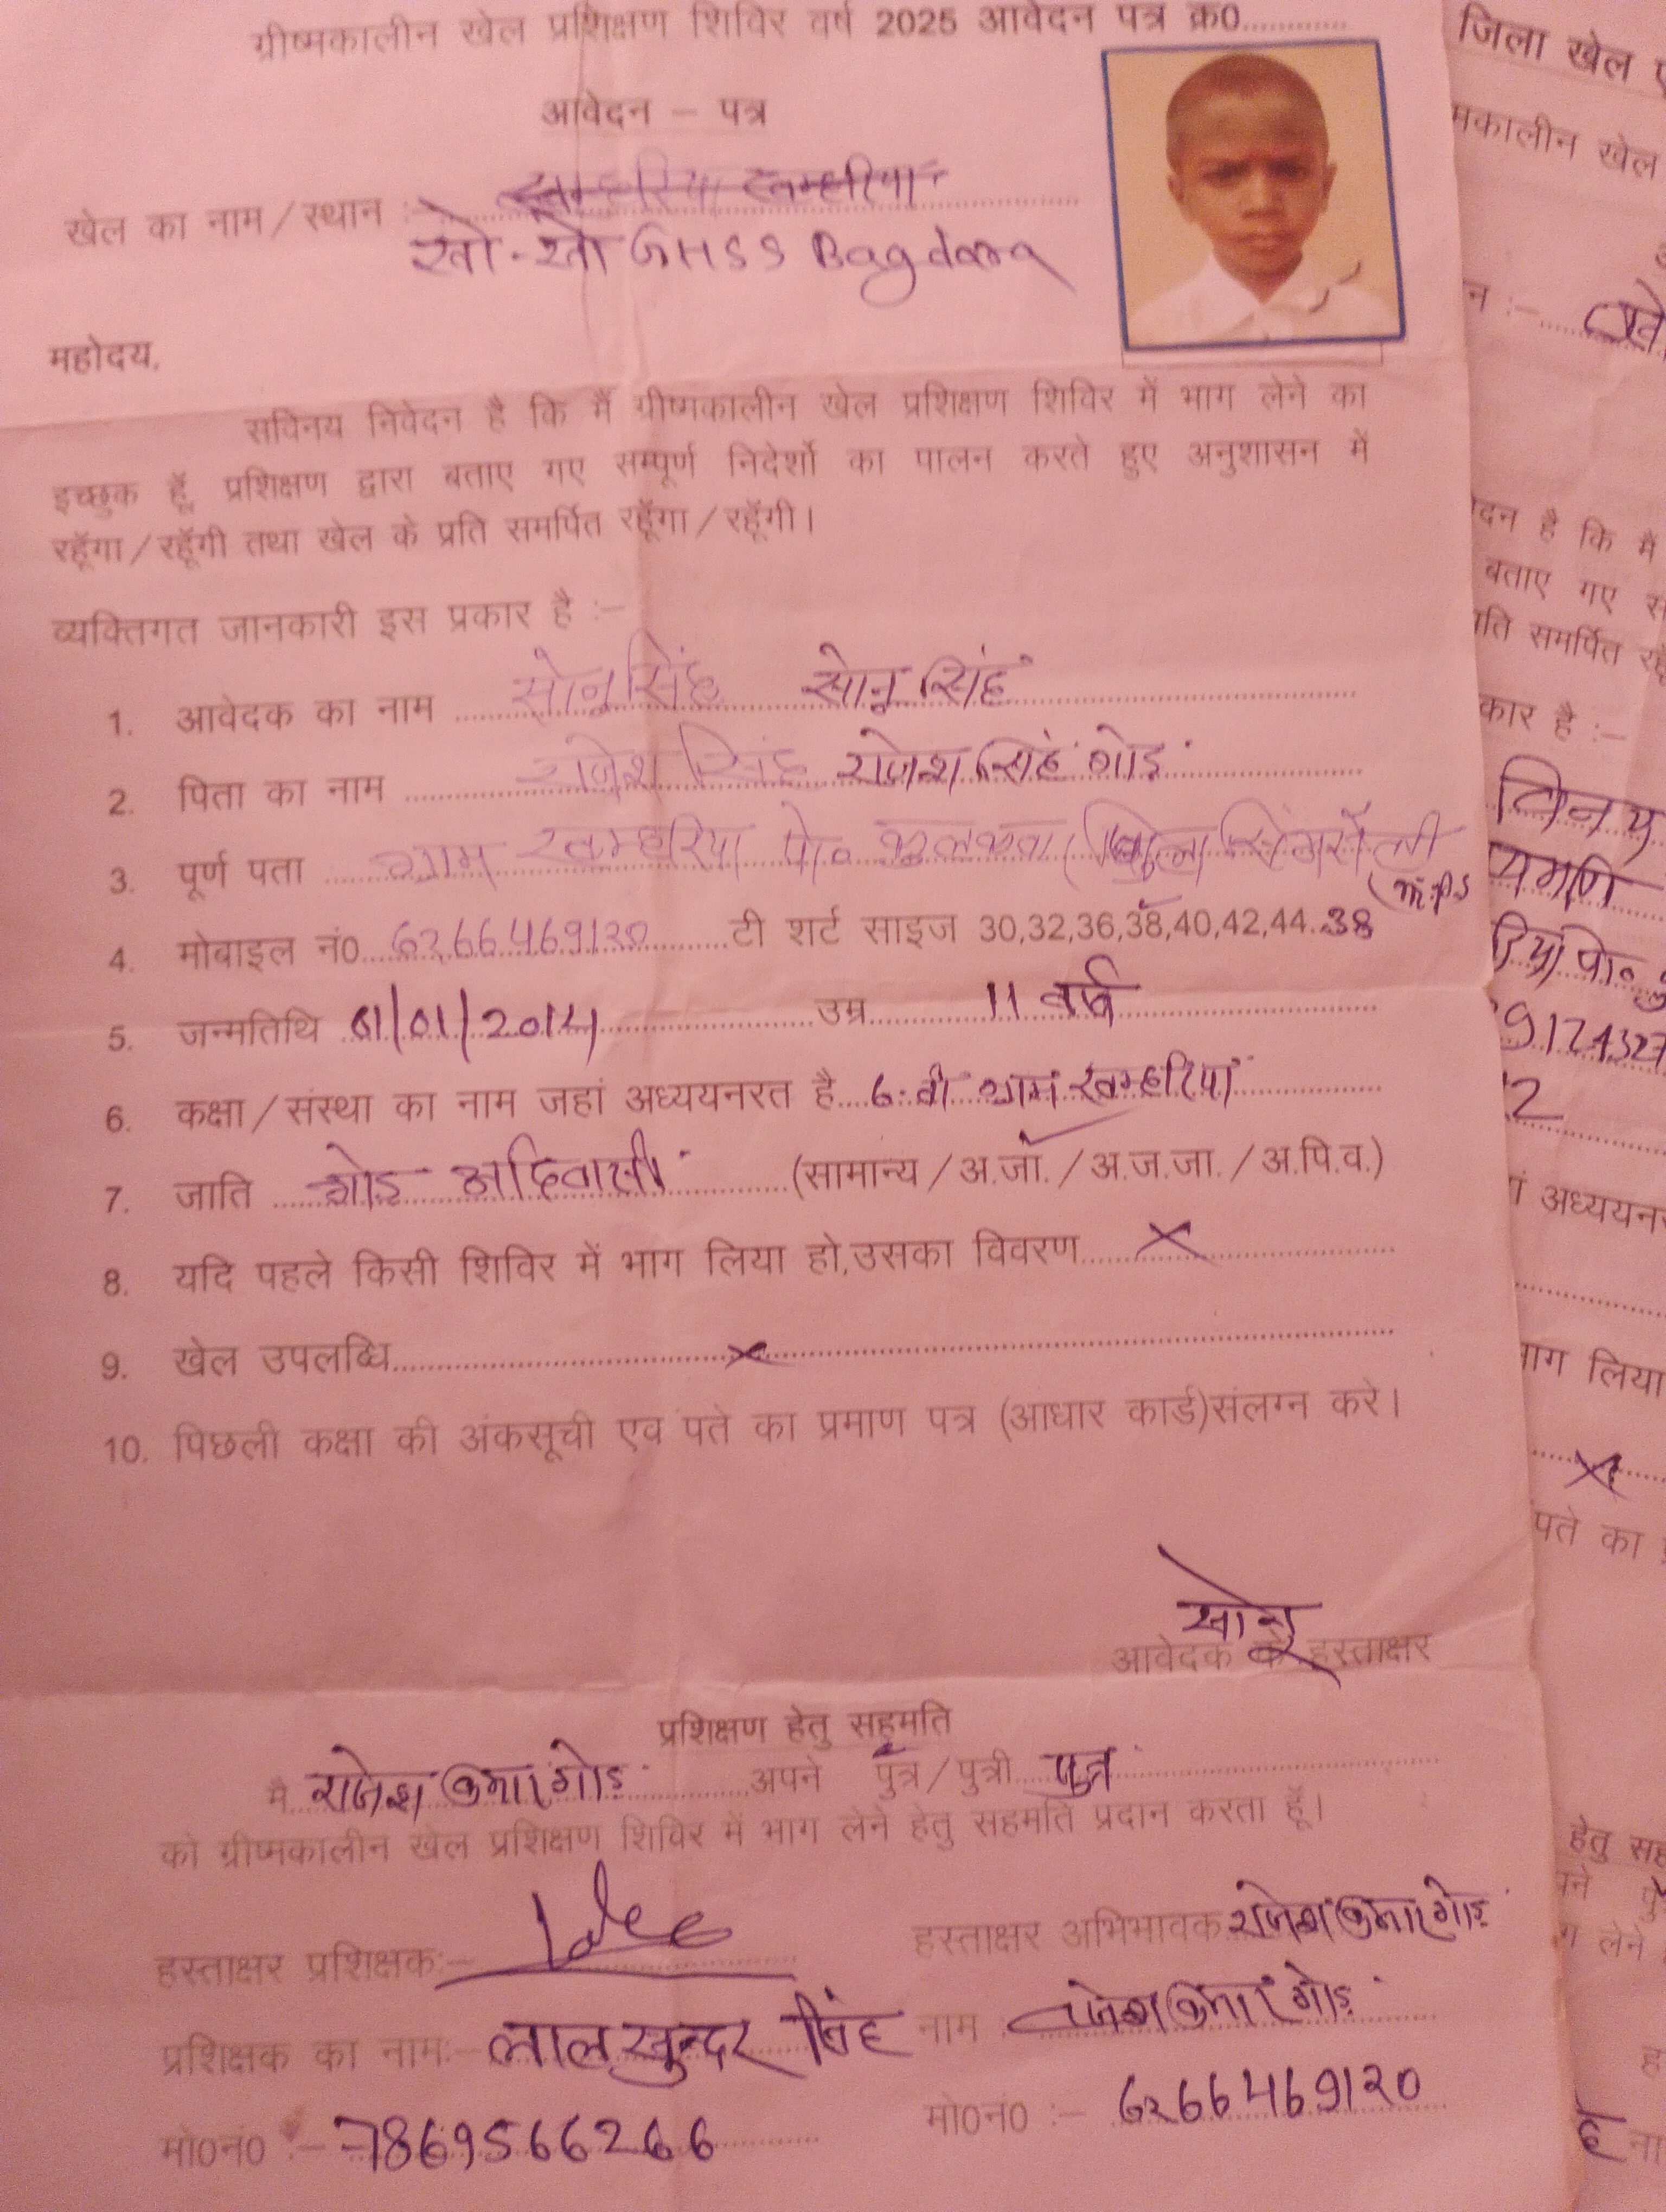 ग्रीष्मकालीन खेल प्रशिक्षण शिविर वर्ष 2025 आवेदन पत्र क्र0............
आवेदन – पत्र
खेल का नाम/स्थान :- खम्हरिया खम्हरिया
खो-खो GHSS Bagdara
महोदय,
सविनय निवेदन है कि मैं ग्रीष्मकालीन खेल प्रशिक्षण शिविर में भाग लेने का
इच्छुक हूँ, प्रशिक्षण द्वारा बताए गए सम्पूर्ण निदेर्शो का पालन करते हुए अनुशासन में
रहूँगा/रहूँगी तथा खेल के प्रति समर्पित रहूँगा/रहूँगी।
व्यक्तिगत जानकारी इस प्रकार है :–
1. आवेदक का नाम सोनू सिंह सोनू सिंह
2. पिता का नाम राजेश सिंह राजेश सिंह गोड़
3. पूर्ण पता ग्राम खम्हरिया पो० (जिला सिंगरौली
(m.p)
4. मोबाइल नं0 6266469120 टी शर्ट साइज 30,32,36,38,40,42,44. 38
5. जन्मतिथि 01/01/2014 उम्र 11 वर्ष
6. कक्षा/संस्था का नाम जहां अध्ययनरत है 6 वी ग्राम खम्हरिया
7. जाति गोड़ आदिवासी (सामान्य/अ.जा./अ.ज.जा./अ.पि.व.)
8. यदि पहले किसी शिविर में भाग लिया हो,उसका विवरण ×
9. खेल उपलब्धि ×
10. पिछली कक्षा की अंकसूची एव पते का प्रमाण पत्र (आधार कार्ड)संलग्न करे।
सोनू
आवेदक के हस्ताक्षर
प्रशिक्षण हेतु सहमति
मै राजेश कुमार गोड़ अपने पुत्र/पुत्री पुत्र
को ग्रीष्मकालीन खेल प्रशिक्षण शिविर में भाग लेने हेतु सहमति प्रदान करता हूँ।
हस्ताक्षर प्रशिक्षक:– हस्ताक्षर अभिभावक राजेश कुमार गोड़
प्रशिक्षक का नाम:– लाल सुन्दर सिंह नाम राजेश कुमार गोड़
मो0नं0 :– 7869566266 मो0नं0 :– 6266469120
जिला खेल
मकालीन खेल
न :–
दन है कि मैं
बताए गए
समर्पित
कार है :–
विनय
पो०
9174327
12
अध्ययन
भाग लिया
×
पते का
हेतु सह
लेने